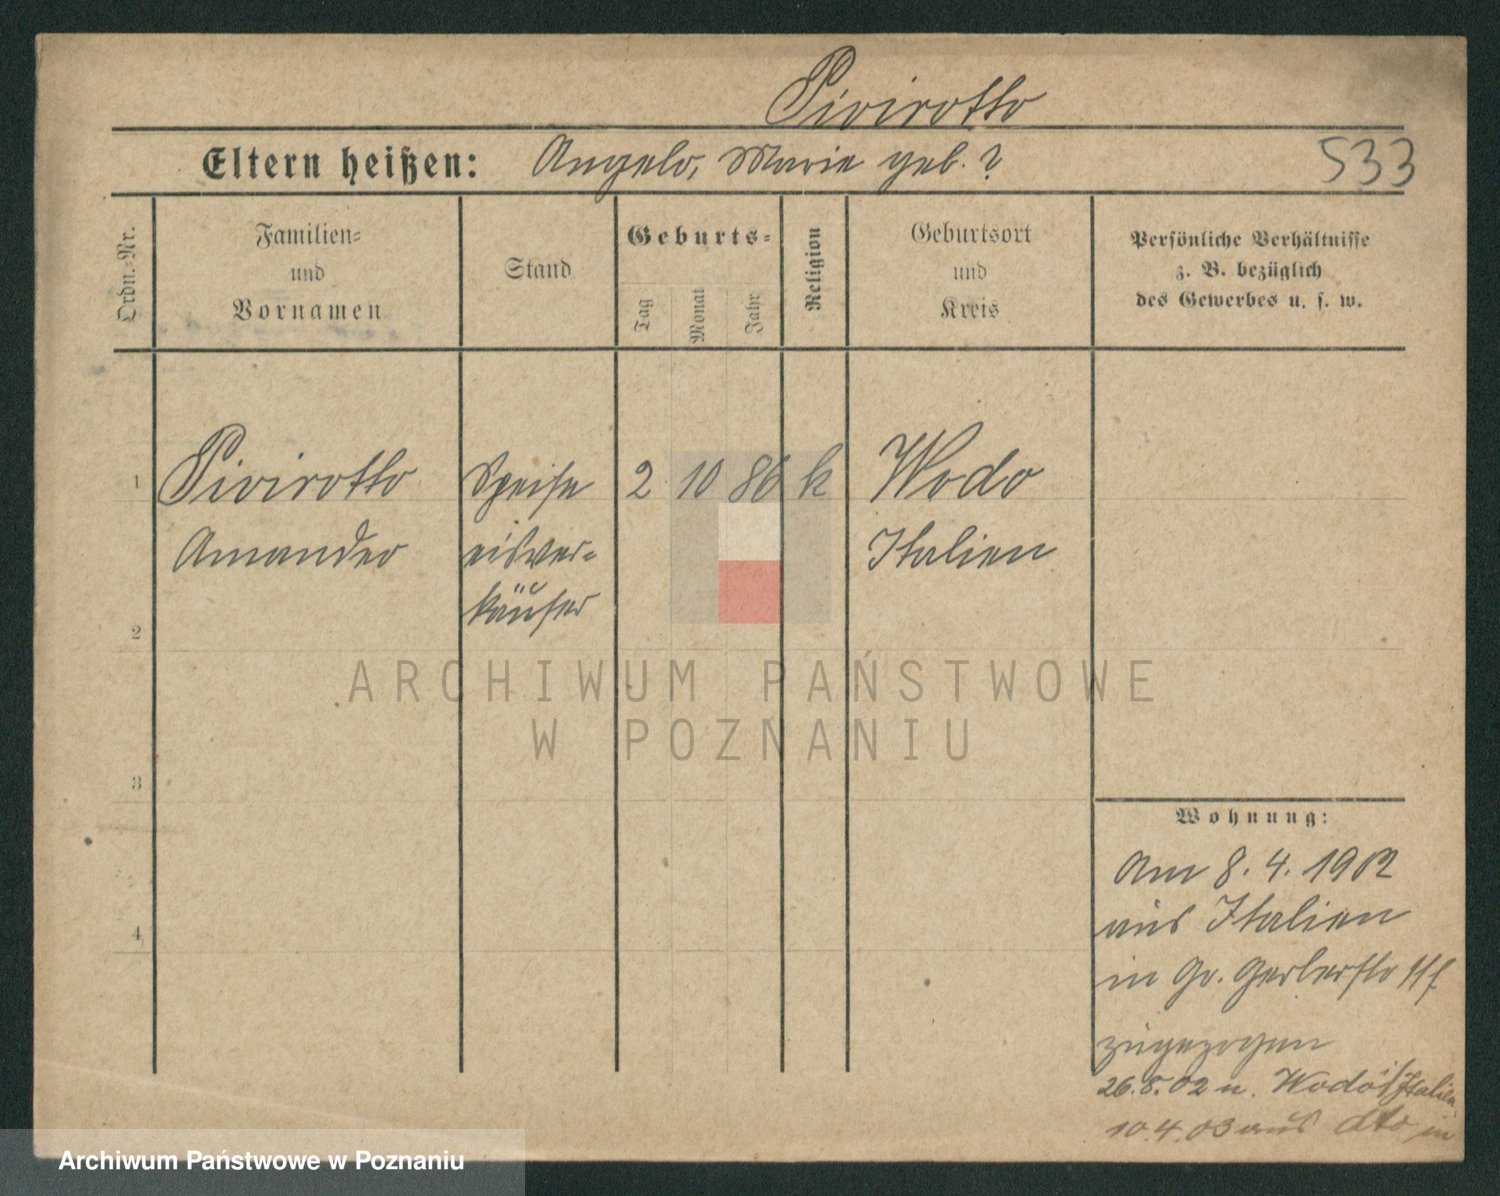 Pivirotto
Eltern heißen: Angelo, Marie geb. ? 533
Ordn.-Nr.
Familien-
und
Vornamen
Stand
Geburts-
Tag
Monat
Jahr
Religion
Geburtsort
und
Kreis
Persönliche Verhältnisse
z. B. bezüglich
des Gewerbes u. s. w.
1 Pivirotto Speise 2 10 86 k Wodo
Amander eisver- Italien
käufer
2
3
4
Wohnung:
Am 8. 4. 1902
aus Italien
in Gr. Gerberstr
zugezogen
26.8.02 n. Wodo i/Italien
10.4.03 aus dto in
ARCHIWUM PAŃSTWOWE
W POZNANIU
Archiwum Państwowe w Poznaniu